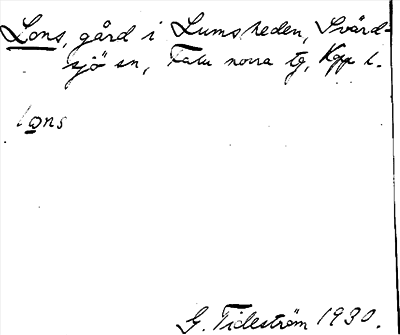 Lons, gård i Lumsheden, Svärd-
sjö sn, Falu norra tg, Kpp l.
lons
G. Tideström 1930.